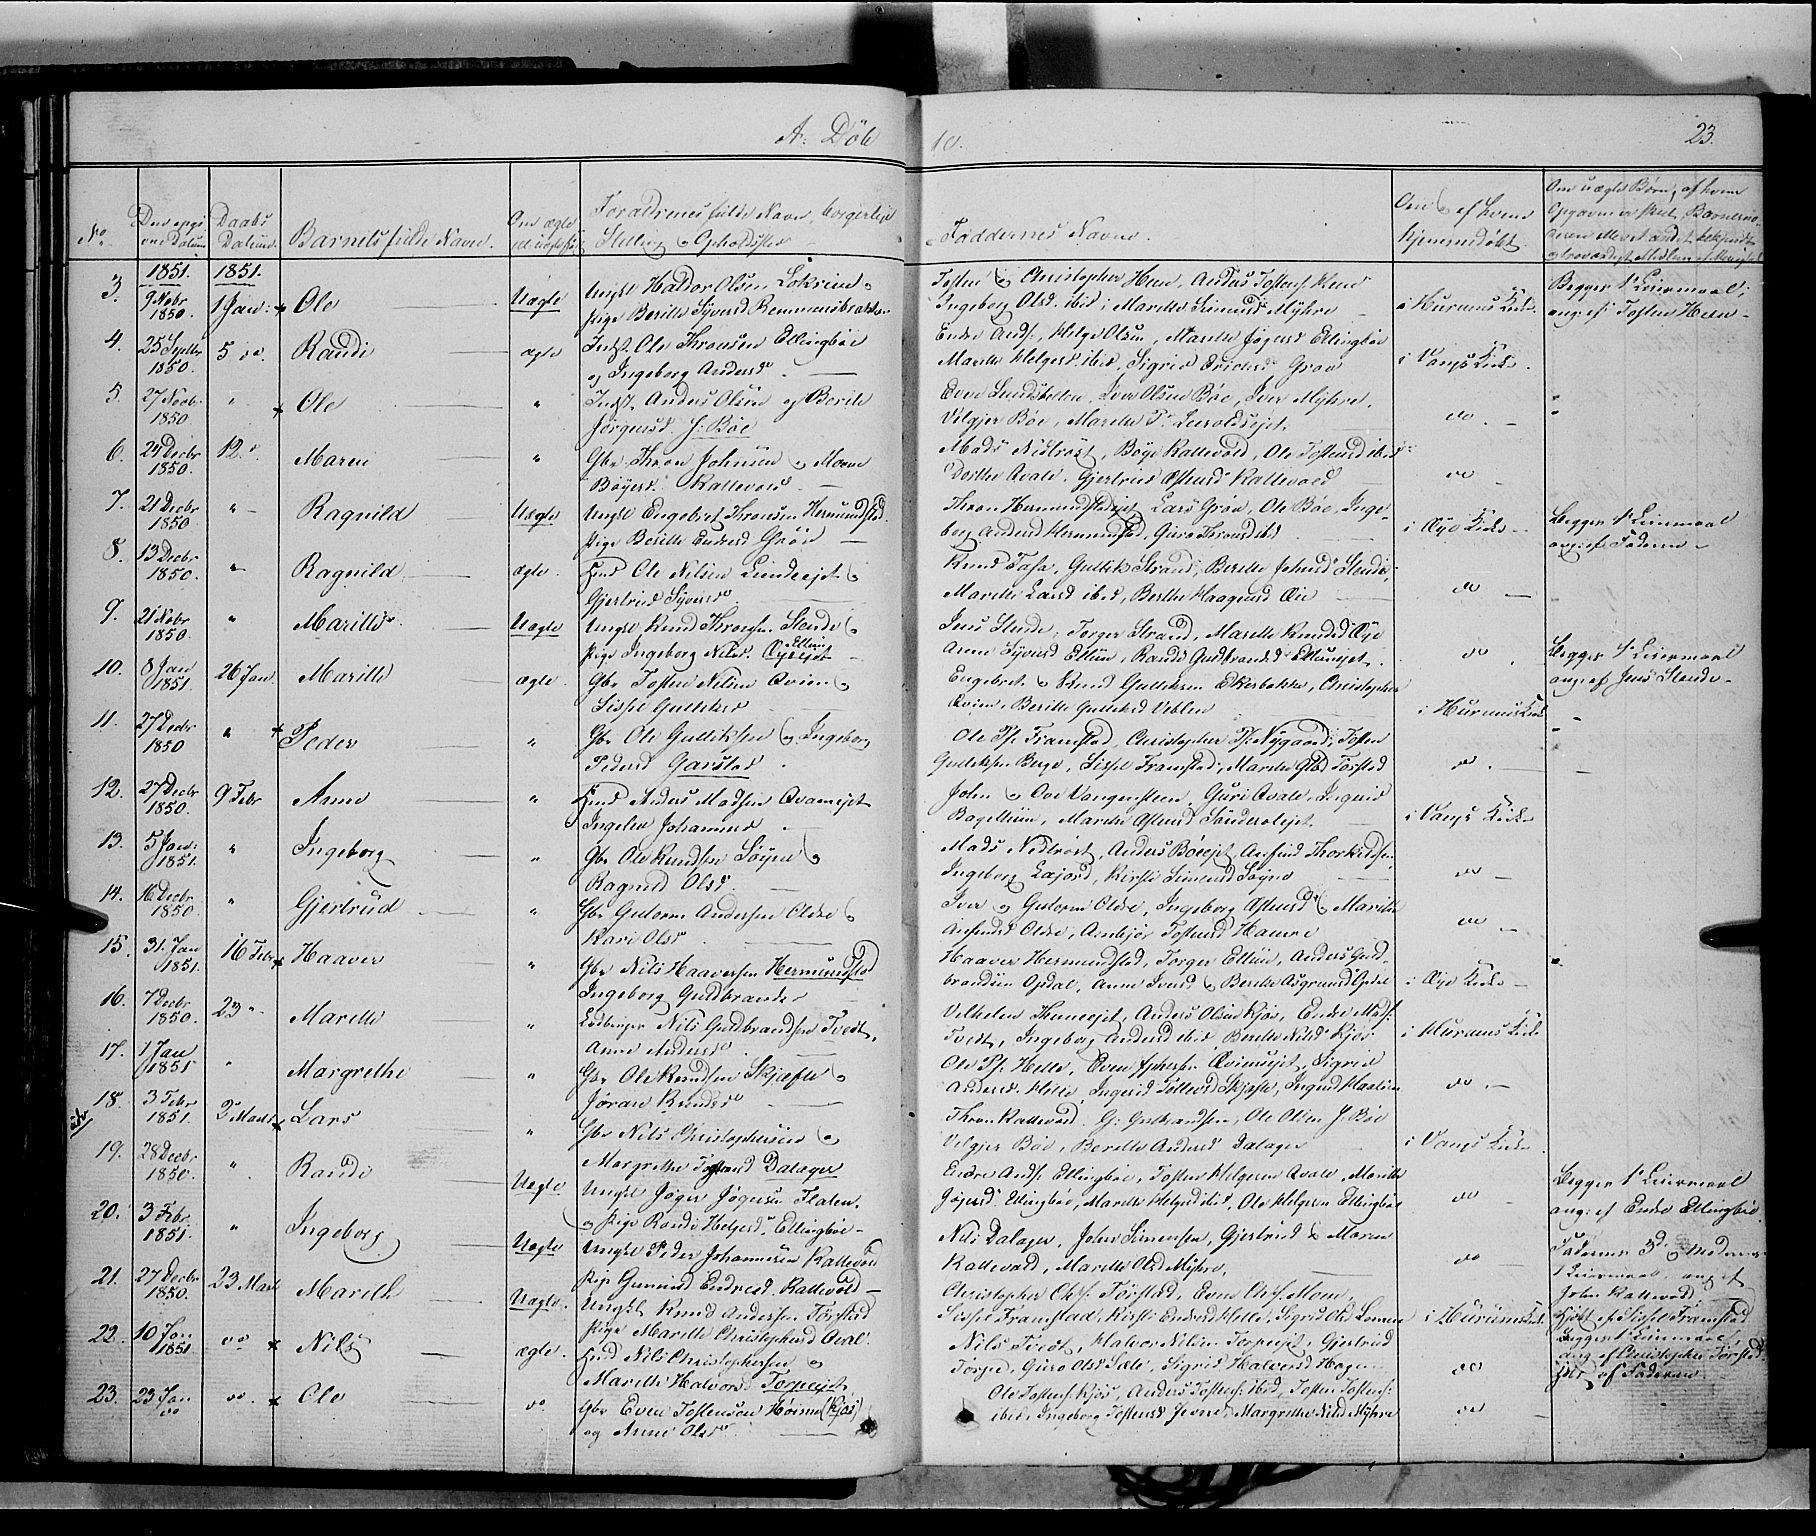 A: Døb 10. 23.
No Den opgivne Datum Daabs Datum. Barnets fulde Navn. Om ægte ell. uægte født Forældrenes fulde Navn borgerlige Stilling og Opholdssted Faddernes Navne. Om og af hvem hjemmedøbt. Om uægte Børn, af hvem
1851. 1851.
3. 9 Nobr 1850. 1 Jan: Ole Uægte Ungk Haldor Olsen Løkrien
Pige Berille Syversd
Tosten og Christopher Heen, Anders Tostens. Heen
Ingeborg Olsd. ibid; Marelle Simensd Myhre
i Hurums Kirke
Begges 1ste Leiermaal;
ang. af Tosten Heen
4. 25 Septbr 1850. 5 do. Randi ægte Indst. Ole Thronsen Ellingbøe
og Ingeborg Andersd.
Endre Ands., Helge Olsen, Marelle Jøgersd Ellingbøe
Marelle Helgesd. ibid, Sigrid Ericksd Grøv
i Vangs Kirke.
5. 27 Nobr. 1850 " Ole " Indst. Anders Olsen og Berile
Jørgensd. J: Bøe
Even Sundsbøllen, Iver Olsen Bøe, Iver Myhre,
Velgjer Bøe, Marelle
do
6. 29 Decbr 1850. 12 " Maren " Gbr. Thron Johnsen og Marne
Bøyesd. Kattevold.
Mads Nedrøst, Bøye Kattevold, Ole Tostensd ibid
Dorthe Qvale, Gjertrud Ostensd Kattevold
do
7. 21 Decbr 1850. " Ragnild Uægte Ungk Engebret Thronsen Hermundstad.
Pige Berille Endresd Grøv
Thron Hermundstadejet, Lars Grøv, Ole Bøe, Inge-
borg Andersd Hermundstad, Guro Thronsd ibid
i Øye Kirke
Begges 1ste Leiermaal
ang. af Faderen
8. 13 Decbr 1850. " Ragnild. ægte Hmd Ole Nilsen Lundeejet og
Gjertrud Syversd
Knud Tasa, Gullik Strand, Berille Johnsd Stende,
Marelle Larsd ibid, Berthe Haagensd Øie
do
9. 21 Nobr 1850. " Marille. Uægte Ungk Knud Thronsen Stende og
Pige Ingeborg Nilsd. Ellun Øyeejet
Jens Stende, Torger Strand, Marelle Knudsd Øye
Anne Syversd Ellun, Randi Gudbrandsd Ellunejet.
do
Begges 1ste Leiermaal
ang. af Jens Stende
10. 8 Jan 1851. 26 Jan Marille ægte. Gbr. Tosten Nilsen Qvien og
Sissel Gulliksd
Engebret og Knud Gulliksen Ekerbakke, Christopher
Qvien, Berille Gulliksd Veblen
i Hurums Kirke
11. 27 Decbr 1850 " Peder " Gbr Ole Gulliksen og Ingeborg
Pedersd Garstad
Ole Ps. Framstad, Christopher Ps. Nygaard, Tosten
Gulliksen Berge, Sissel Framstad, Marelle Olsd Tørstad
do
12. 27 Decbr 1850. 9 Febr Anne " Hmd Anders Madsen Qvamejet
Ingeleu Johannesd
John og Ove Vangensteen, Guri Qvale, Ingrid
Bagethun, Marelle Ostensd Sandersolejet.
i Vangs Kirke
13. 5 Jan: 1851. " Ingeborg " Gbr Ole Knudsen Søyne og
Ragnild Olsd.
Mads Nedrøst, Anders Bøeejet, Arnfind Thorkelsen
Ingeborg Lajord, Kirsti Simensd Søyne
do
14. 16 Decbr 1850. " Gjertrud " Gbr Guttorm Andersen Oldre og
Kari Olsd
Iver og Guttorm Oldre, Ingeborg Ostensd og Marelle
Arnfindsd Oldre, Arnbjør Tostensd Hamre
do
15. 31. Jan 1851. 16 Febr Haaver " Gbr Nils Haaversen Hermundstad
Ingeborg Guldbrandsd
Haaver Hermundstad, Torger Ellun, Anders Guld-
brandsen Opdal, Anne Iversd og Berille Asgrimsd Opdal
i Øye Kirke
16. 7 Decbr 1850. 23 " Marelle " Nils Guldbrandsen Tvedt,
Anne Andersd
Vilhelm Huneejet, Anders Olsen Kjøs, Endre Mads:
Tvedt, Ingeborg Andersd ibid, Berille Nilsd Kjøs
i Hurums Kirke
17. 1 Jan 1851 " Margrethe " Gbr Ole Knudsen Skjefte og
Jøran Knudsd
Ole Ps. Helle, Even Qviemsejet, Sigrid
Andersd Helle, Ingerid Tollevsd Skjefte, Ingerid Haalien
do
18. 3 Febr 1851. 2 Marts Lars " Gbr Nils Christophersen og
Margrethe Tostensd Dalager
Thron Kattevold, G: Guldbrandsen, Ole Olsen J. Bøe
Velgjer Bøe, Berille Andersd Dalager
i Vangs Kirke
19. 28 Decbr 1850. " Randi Uægte Ungk. Jøger Jøgersen Flaten
og Pige Randi Helgesd Ellingbøe
Endre Ands. Ellingbøe, Tosten Helgesen Qvale, Marelle
Jøgersd. Ellingbøe, Marelle Helgesd ibid, Ole Helgesen Ellingbøe
do
Begges 1ste Leiermaal
ang: af Endre Ellingbøe
20. 3 Febr. 1851. " Ingeborg Uægte Ungk Peder Johannesen Kattevold
Pige Gunnild Endresd Kattevold
Nils Dalager, John Simensen, Gjertrud og Maren
Kattevold, Marelle Olsd Myhre.
do
Faderens 3die og Moderens
1ste Leiermaal, ang. af
John Kattevold
21. 27 Decbr 1850. 23 Marts Marith Uægte. Ungk Knud Andersen Tørstad
Pige Marelle Christophersd Qvale
Christopher Chrs: Tørstad, Even Chrs. Moen,
Sissel Framstad, Kirsti Endresd Helle, Sigrid Olsd
i Hurums Kirke
Hjdbt af Sissel Framstad
Begges 1ste Leiermaal,
ang. af Christopher Tørstad
22. 10 Jan 1851 do Nils ægte. Hmd Nils Christophersen og
Marelle Halvorsd Torpeejet
Nils Tvedt, Halvor Nilsen Torpeejet, Gjertrud
Torpe, Guro Olsd Sæle, Sigrid Halvorsd Hagen
do
Hjdbt. af Faderen
23. 23 Jan do do. Ole do Gbr. Even Tostensen Hørme (Kjøs)
og Anne Olsd
Ole Tostens. Kjøs, Anders Tostens: ibid, Tosten Tostens:
ibid, Ingeborg Tostensd Jevne, Margrethe Nilsd Myhre
do